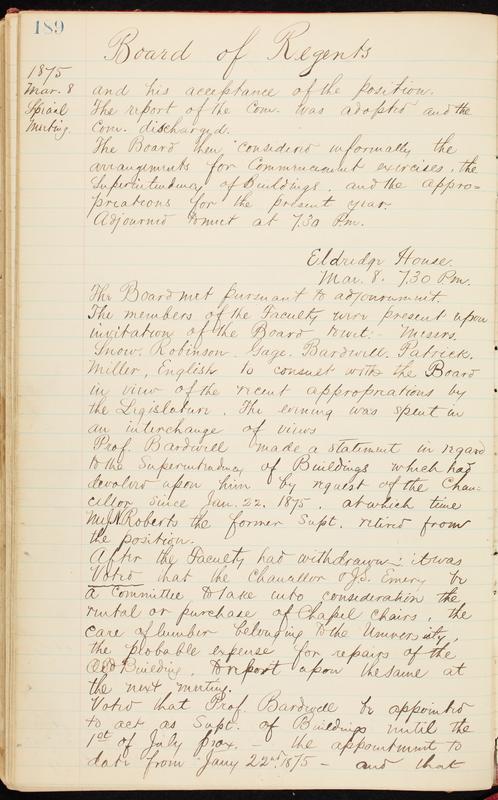 189
Board of Regents
1875
Mar. 8
Special
Meeting
and his acceptance of the position.
The report of the Com. was adopted and the
Com. discharged.
The Board then considered informally the
arrangements for Commencement exercises, the
Superintendency of Buildings, and the appro=
priations for the present year.
Adjourned to meet at 7.30 Pm.
Eldridge House.
Mar. 8. 7.30 Pm.
The Board met pursuant to adjournment.
The members of the Faculty were present upon
invitation of the Board towit: Messrs.
Snow. Robinson. Gage. Bardwell. Patrick.
Miller, English to consult with the Board
in view of the recent appropriations by
the Legislature. The evening was spent in
an interchange of views
Prof. Bardwell made a statement in regard
to the Superintendency of Buildings which had
devolved upon him by request of the Chan=
cellor since Jan. 22, 1875, at which time
Mr Roberts the former Supt. retired from
the position.
After the Faculty had withdrawn: it was
Voted that the Chancellor & J.S. Emery be
a Committee to take into consideration the
rental or purchase of Chapel chairs, the
care of lumber belonging to the University,
the probable expense for repairs of the
Old Building, to report upon the same at
the next meeting.
Voted that Prof. Bardwell be appointed
to act as Supt. of Buildings until the
1st of July prox. — the appointment to
date from Jany 22nd 1875 — and that